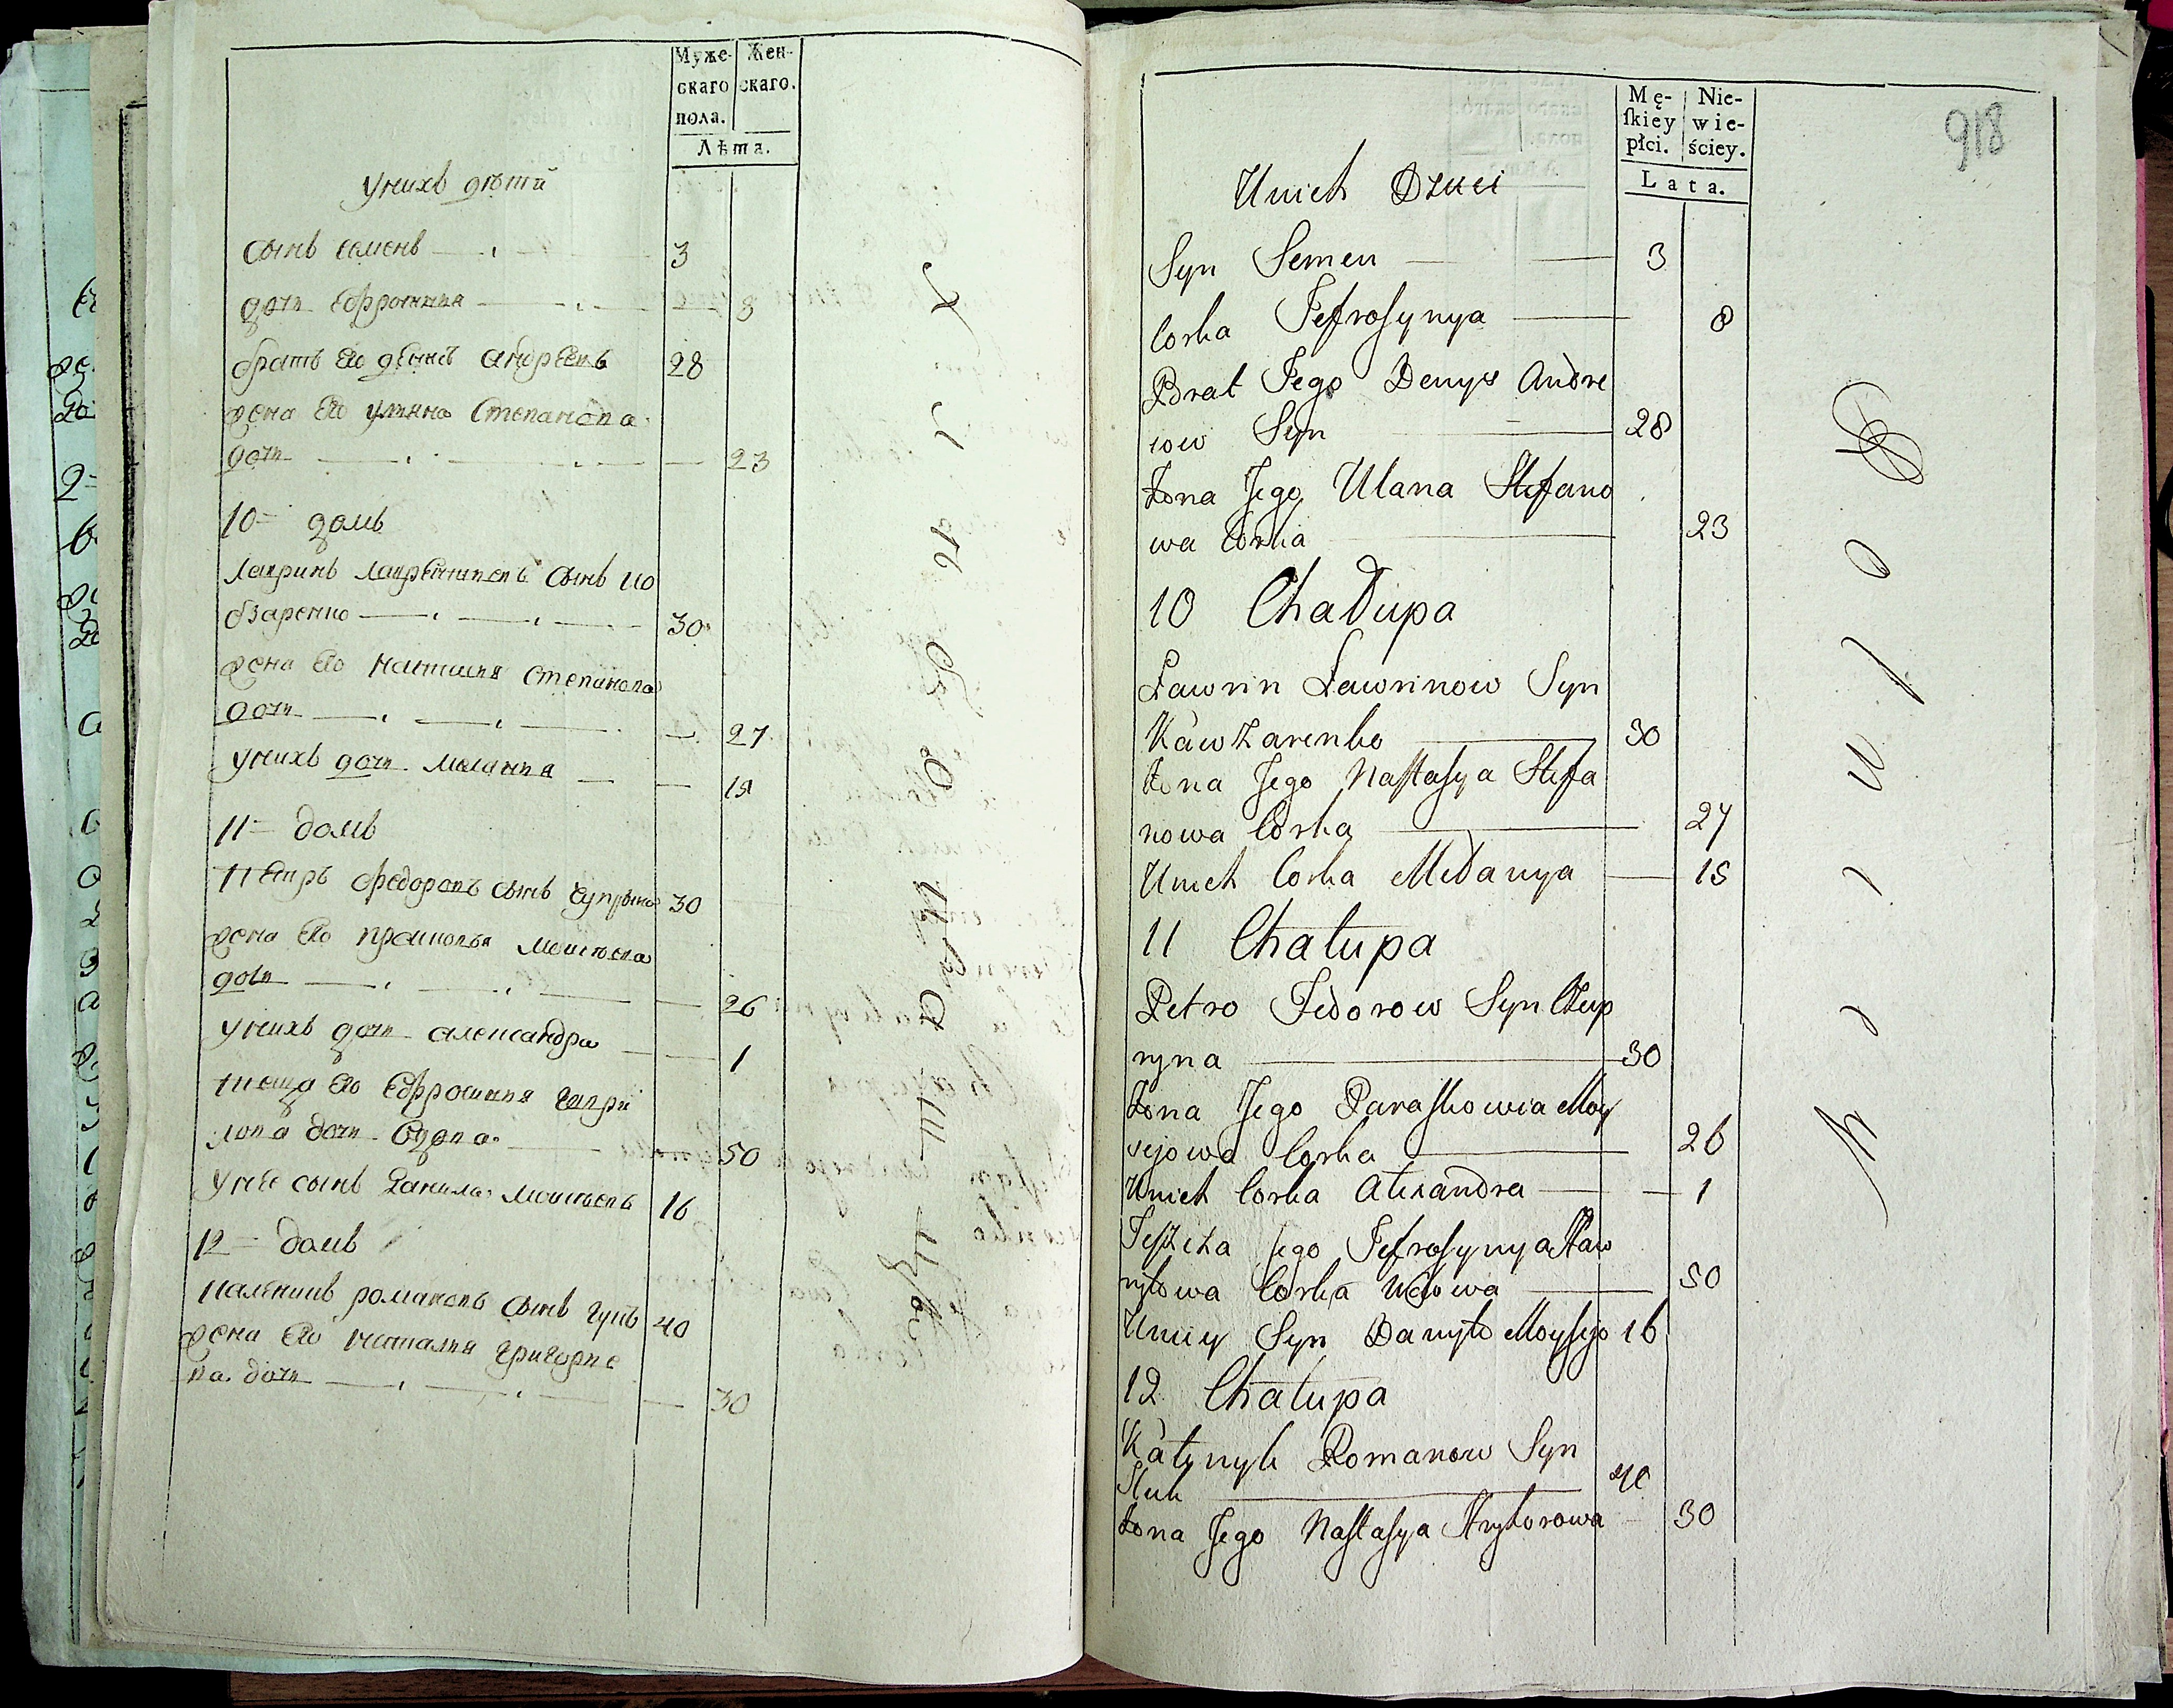 Муже-
скаго
пола.
Жен-
скаго.
Лѣта.
У нихъ дѣти
сынъ Семенъ 3
дочь Ефросиния 8
братъ Его денисъ андреевъ 28
жена Его улияна Степанова
дочь 23
10 домъ
Лавринъ Лавриновъ сынъ Ко
взаренко 30
жена Его настасия степанова
дочь 27
У нихъ дочь Мелания 15
11 домъ
Петръ Федоровъ сынъ 30
жена Его Моисѣева
дочь 26
У нихъ дочь александра 1
теща Его Ефросиния Гаври
лова дочь вдова 50
У нее сынъ Данила Моисѣевъ 16
12 домъ
Романовъ сынъ Гукъ 40
жена Его Григорье
ва дочь 30
Mę-
ſkiey
płci.
Nie-
wie-
ściey.
Lata.
918
Unich Dzieci
Syn Semen 3
Corka Jefrosynya 8
Brat Jego Denys Andre
iow Syn 28
Żona Jego Ulana Stefano
wa Corka 23
10 Chałupa
Ławrin Ławrinow Syn
Kawzarenko 30
Żona Jego Nastasya Stefa
nowa Corka 27
Unich Corka Mełanya 15
11 Chałupa
Petro Fedorow Syn Czup
ryna 30
Żona Jego Paraskowia Moy
sejowa Corka 26
Unich Corka Alexandra 1
Teszcza Jego Jefrosynya Haw
ryłowa Corka Wdowa 50
Uniey Syn Danyło Moysejo 16
12 Chałupa
Kałynyk Romanow Syn
Huk 40
Żona Jego Nastasya Hryhorowa 30